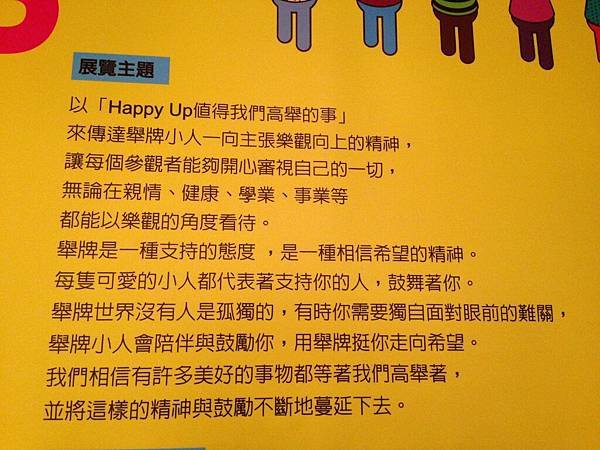 展覽主題
以「Happy Up值得我們高舉的事」
來傳達舉牌小人一向主張樂觀向上的精神，
讓每個參觀者能夠開心審視自己的一切，
無論在親情、健康、學業、事業等
都能以樂觀的角度看待。
舉牌是一種支持的態度 ，是一種相信希望的精神。
每隻可愛的小人都代表著支持你的人，鼓舞著你。
舉牌世界沒有人是孤獨的，有時你需要獨自面對眼前的難關，
舉牌小人會陪伴與鼓勵你，用舉牌挺你走向希望。
我們相信有許多美好的事物都等著我們高舉著，
並將這樣的精神與鼓勵不斷地蔓延下去。